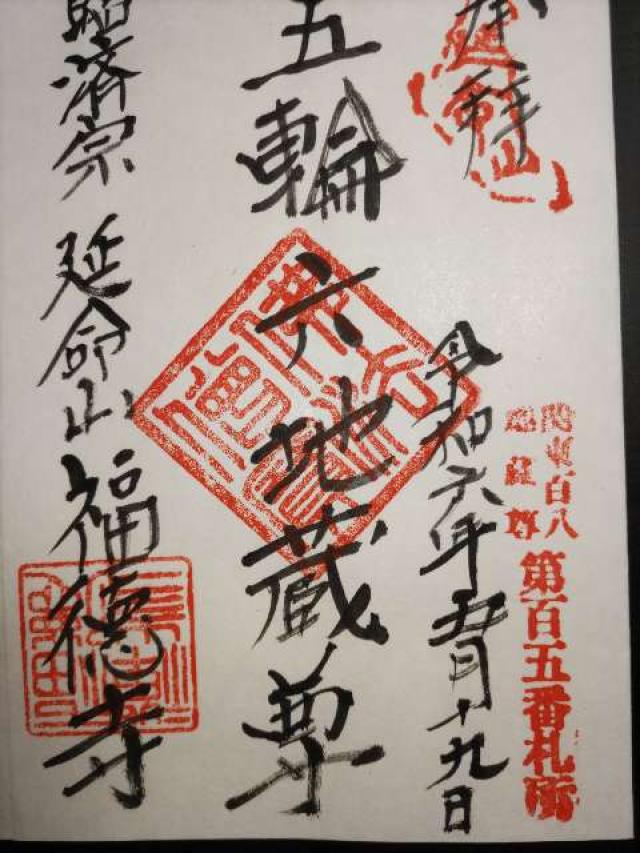 奉拝
延命山
関東百八
地蔵尊
第百五番札所
令和六年五月十九日
五輪六地蔵尊
臨済宗 延命山 福徳寺